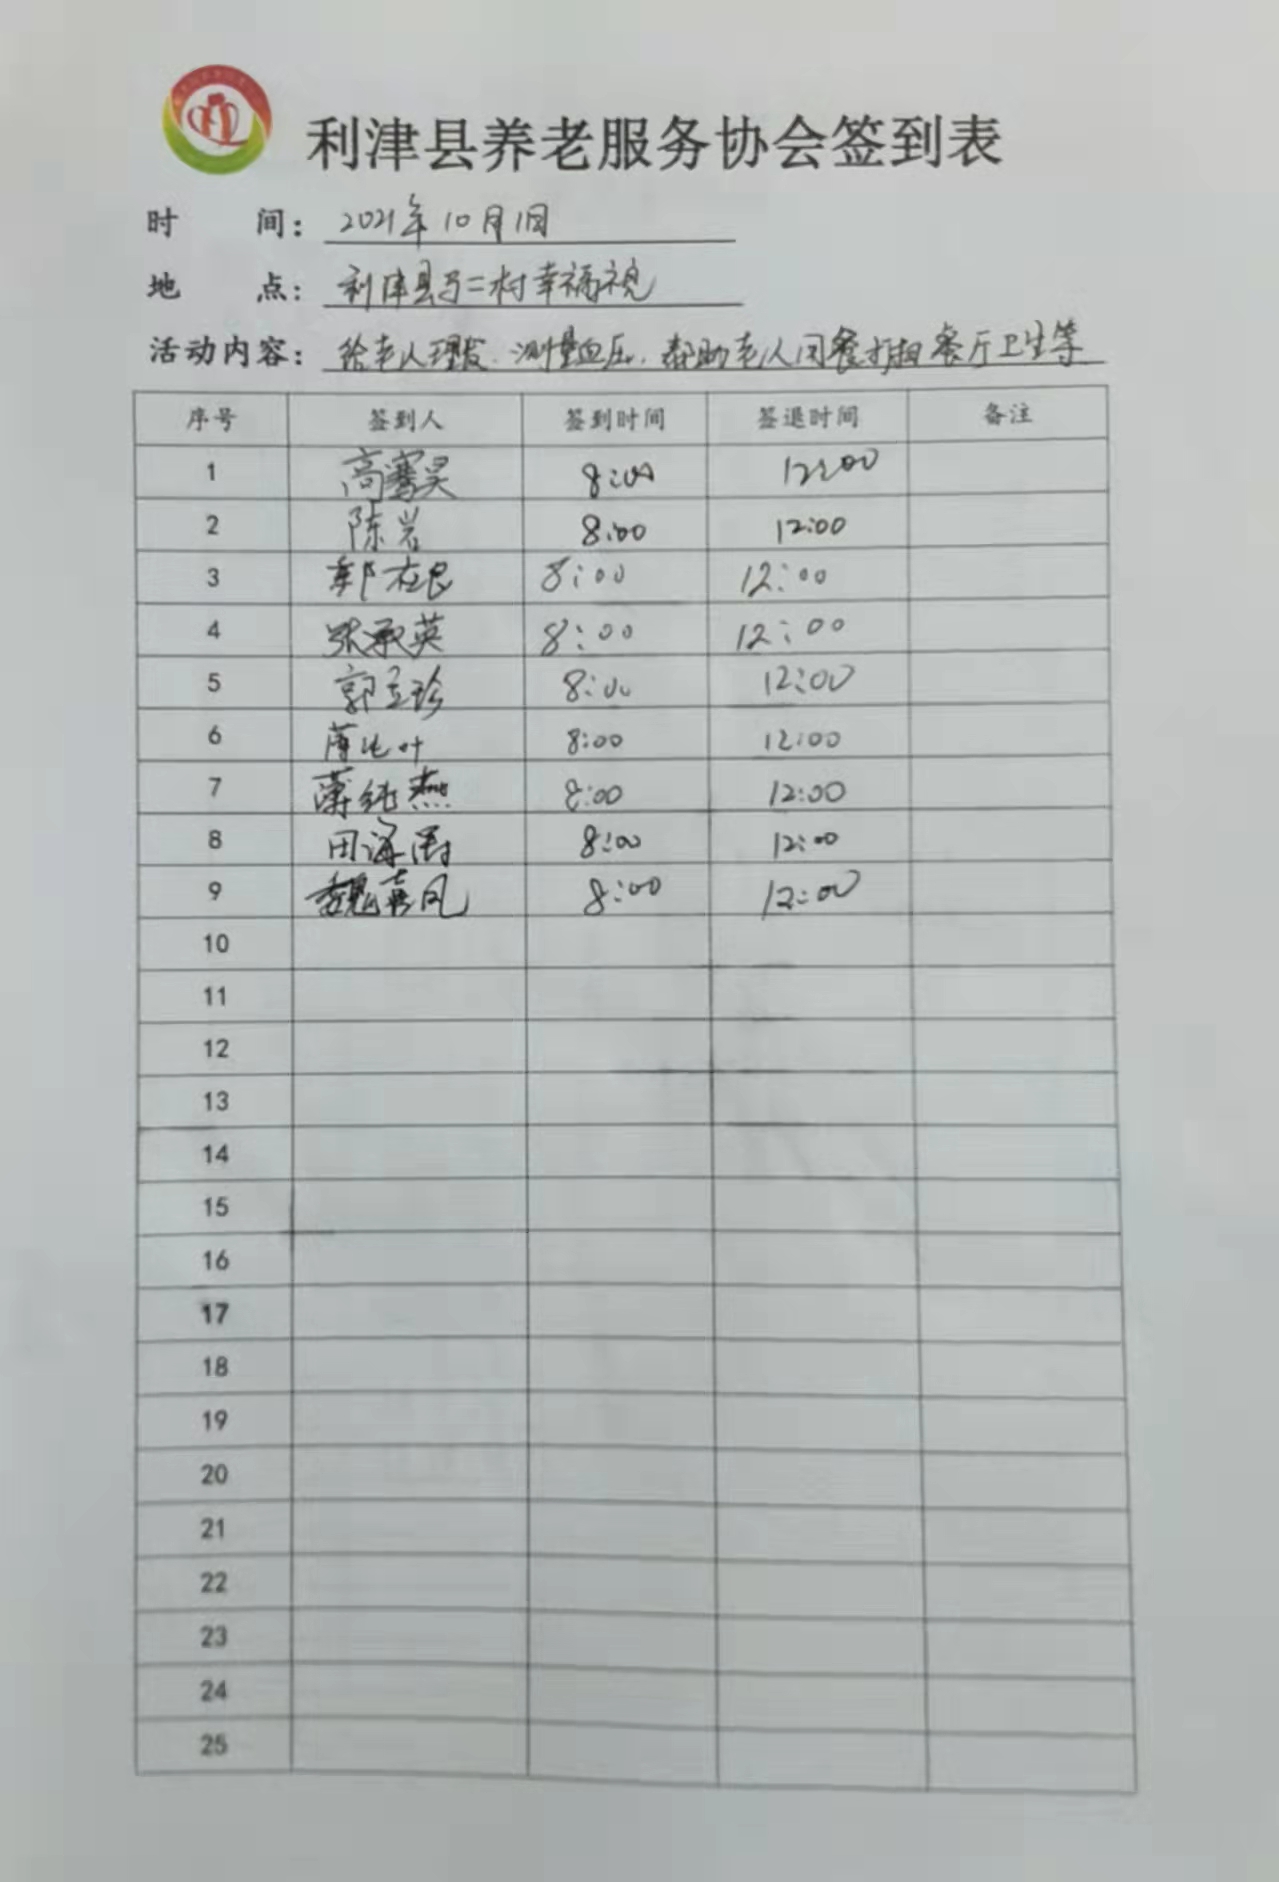 利津县养老服务协会签到表
时 间: 2021年10月1日
地 点: 利津县于二村幸福院
活动内容: 给老人理发、测量血压、帮助老人闭餐打扫餐厅卫生等
序号 签到人 签到时间 签退时间 备注
1 高骞昊 8:00 12:00
2 陈岩 8:00 12:00
3 郭在良 8:00 12:00
4 张承英 8:00 12:00
5 郭立珍 8:00 12:00
6 薄 叶 8:00 12:00
7 薄纯燕 8:00 12:00
8 田海 8:00 12:00
9 魏喜凤 8:00 12:00
10
11
12
13
14
15
16
17
18
19
20
21
22
23
24
25